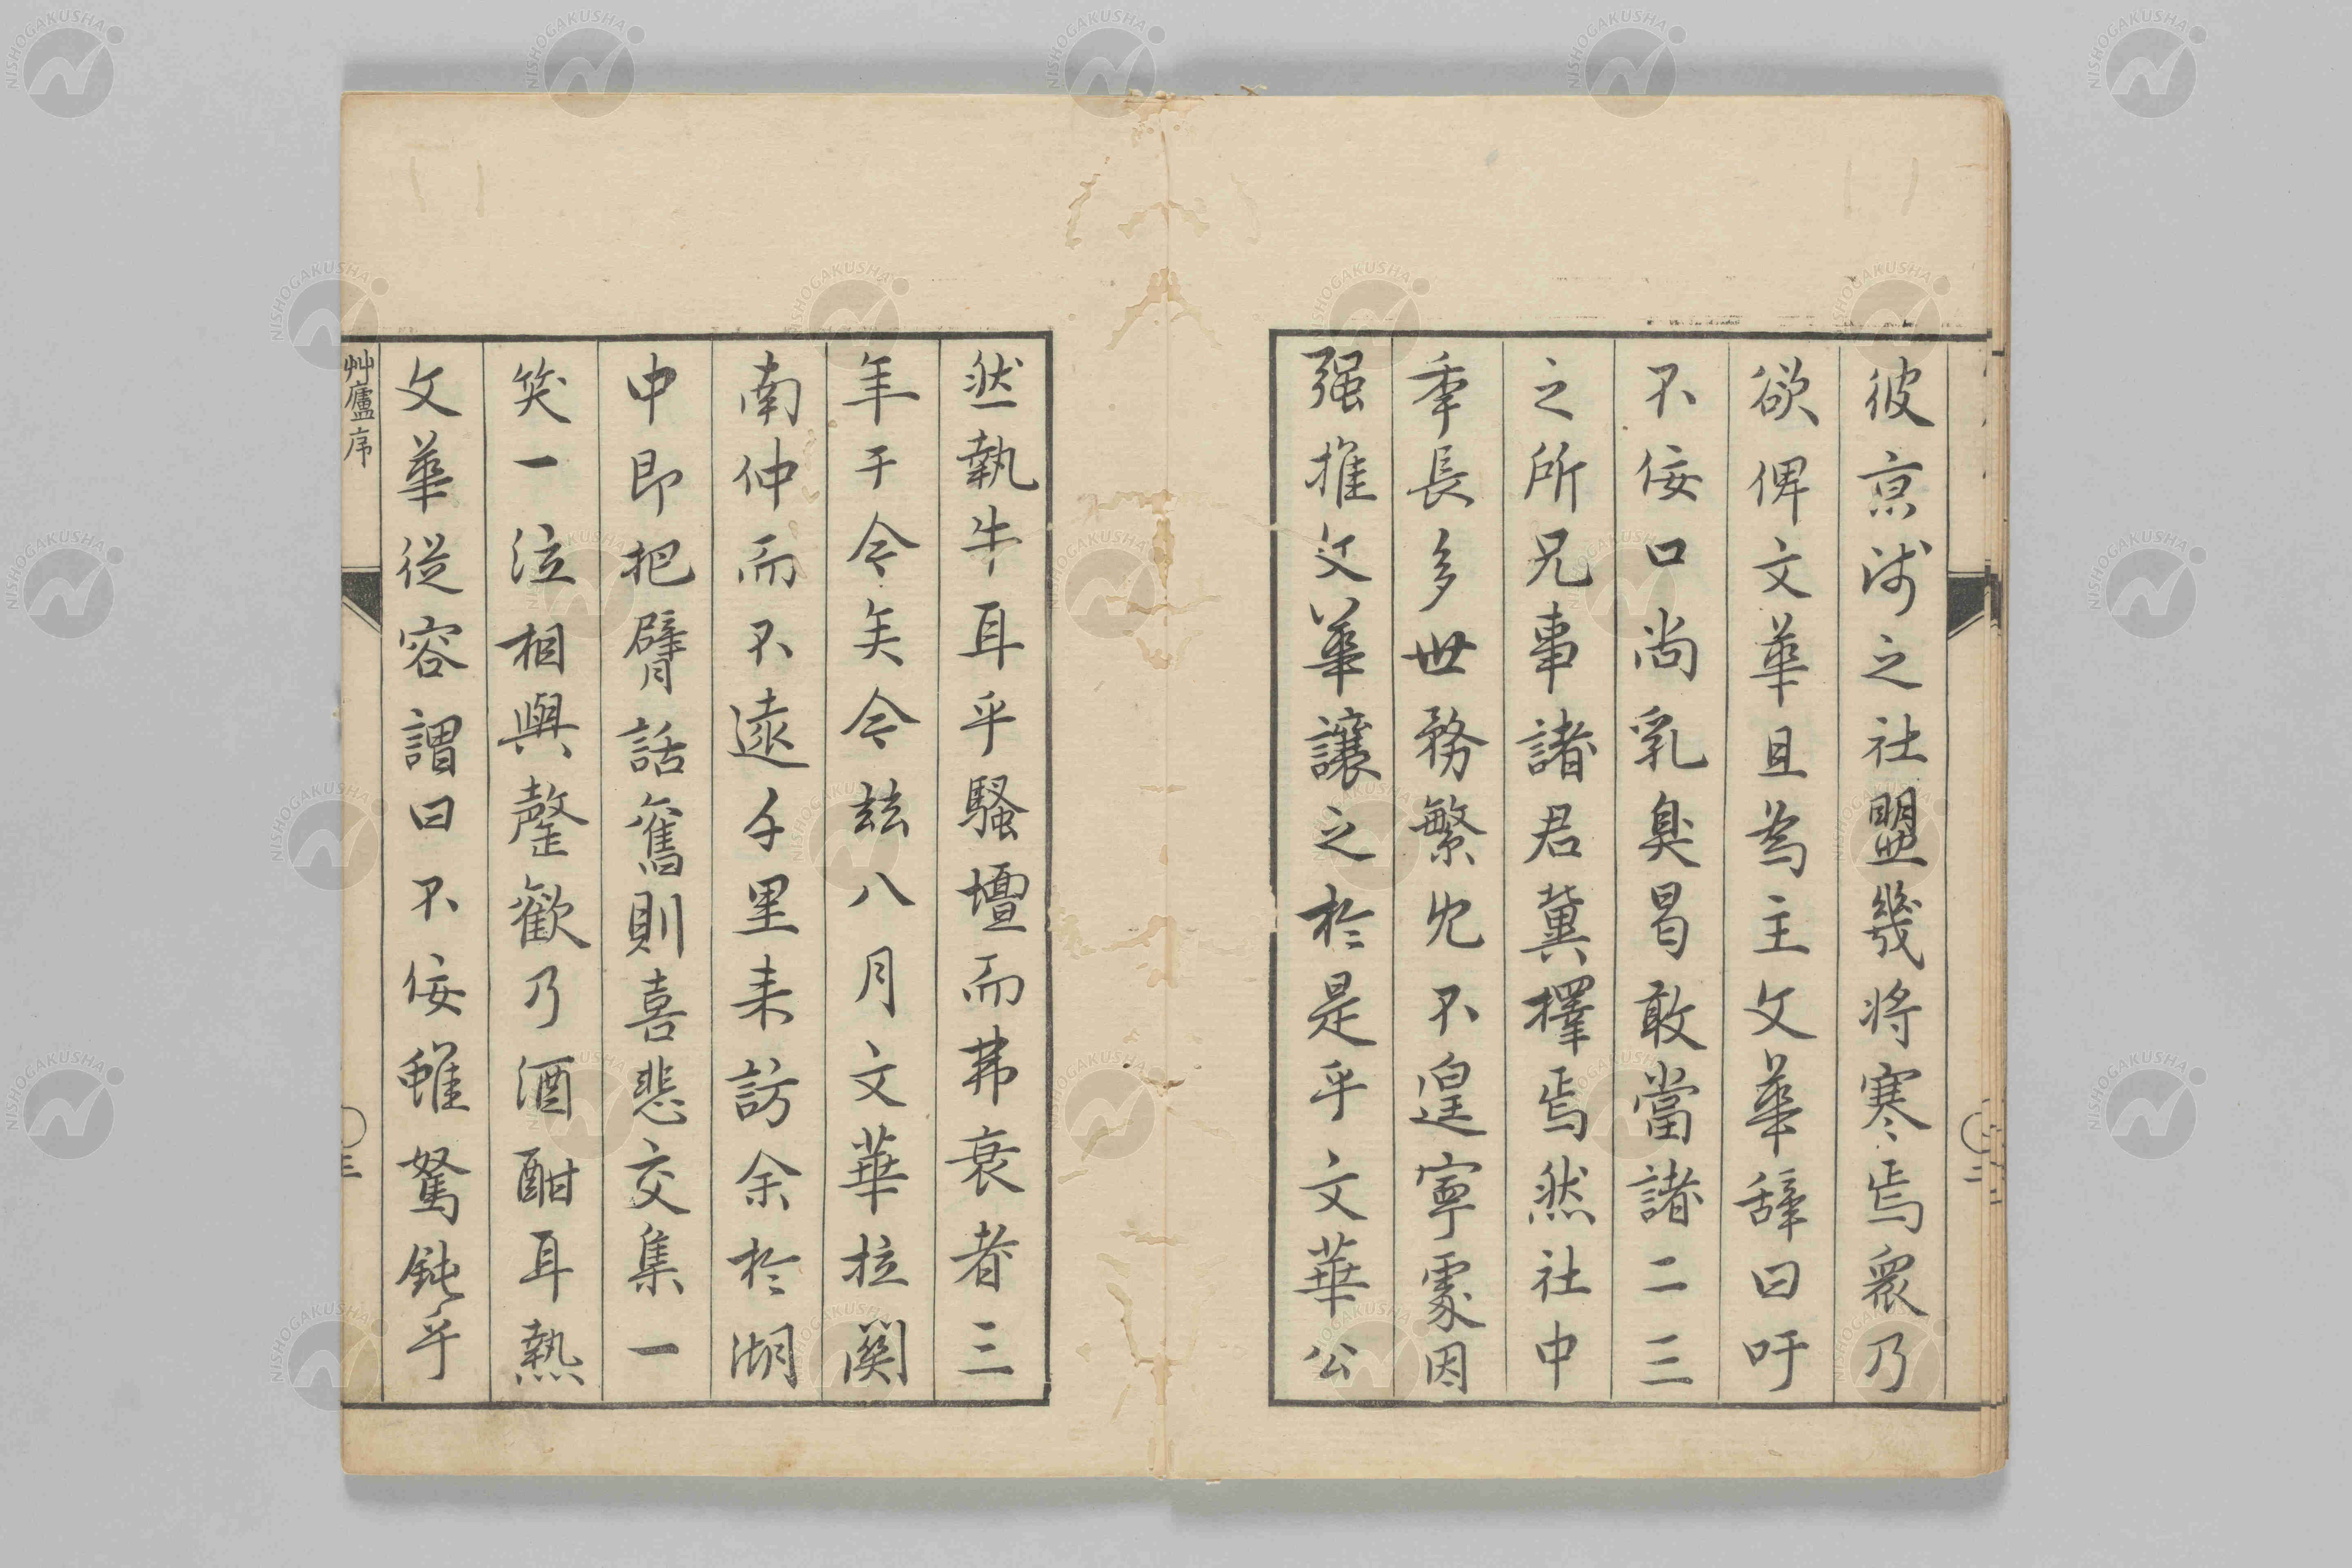 彼京師之社盟幾將寒焉衆乃
欲俾文華且為主文華辭曰吁
不佞口尚乳臭曷敢當諸二三
之所兄事諸君冀擇焉然社中
秊長多世務繁冗不遑寧處因
强推文華讓之於是乎文華公
然執牛耳乎騷壇而弗衰者三
年于今矣今茲八月文華拉關
南仲而不遠千里来訪余於湖
中即把臂話舊則喜悲交集一
笑一泣相與罄歡乃酒酣耳熱
文華從容謂曰不佞雖駑鈍乎
艸廬序
三
NISHOGAKUSHA